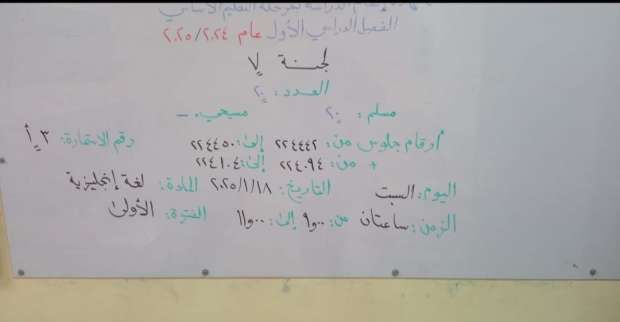 إتمام الدراسة بمرحلة التعليم الأساسي
الفصل الدراسي الأول عام ٢٠٢٥/٢٠٢٤
لجنة ٧
العدد: ٢٠
مسلم: ٢٠ مسيحى: -
أرقام جلوس من: ٢٢٤٤٤٢ إلى: ٢٢٤٤٥٠ رقم الاستمارة: ٣ أ
+ من: ٢٢٤٠٩٤ إلى: ٢٢٤١٠٤
اليوم: السبت التاريخ: ٢٠٢٥/١/١٨ المادة: لغة إنجليزية
الزمن: ساعتان من: ٩٫٠٠ إلى: ١١٫٠٠ الفترة: الأولى